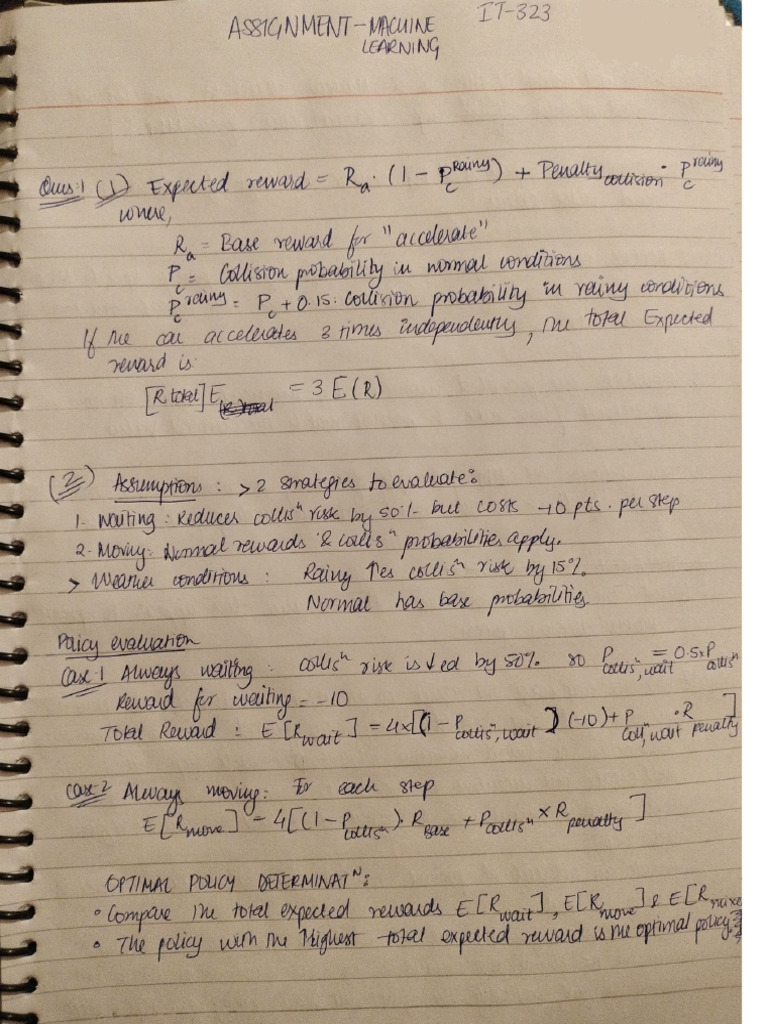 ASSIGNMENT - MACHINE LEARNING
IT-323
Ques:1 (1) Expected reward = Rₐ. (1 - P_c^Rainy) + Penalty collision · P_c^rainy
where,
Rₐ = Base reward for "accelerate"
P_c = Collision probability in normal conditions
P_c^rainy = P_c + 0.15 : collision probability in rainy conditions
If the car accelerates 3 times independently, the total Expected
reward is:
[R total] E = 3 E(R)
(2) Assumptions : > 2 strategies to evaluate:
1- Waiting : Reduces collisⁿ risk by 50% but costs -10 pts. per step
2- Moving: Normal rewards & collisⁿ probabilities apply.
> Weather conditions : Rainy ↑es collisⁿ risk by 15%.
Normal has base probabilities.
Policy evaluation
Case-1 Always waiting : collisⁿ risk is ↓ed by 50% so P_collisⁿ,wait = 0.5xP_collisⁿ
Reward for waiting = -10
Total Reward : E[R_wait] = 4x[(1 - P_collisⁿ,wait) (-10) + P_collⁿ,wait · R_penalty]
Case-2 Always moving: For each step
E[R_move] = 4[(1-P_collisⁿ). R_Base + P_collisⁿ x R_penalty]
OPTIMAL POLICY DETERMINATᴺ:
• Compare the total expected rewards E[R_wait], E[R_move] & E[R_mixe
• The policy with the Highest total expected reward is the optimal policy.